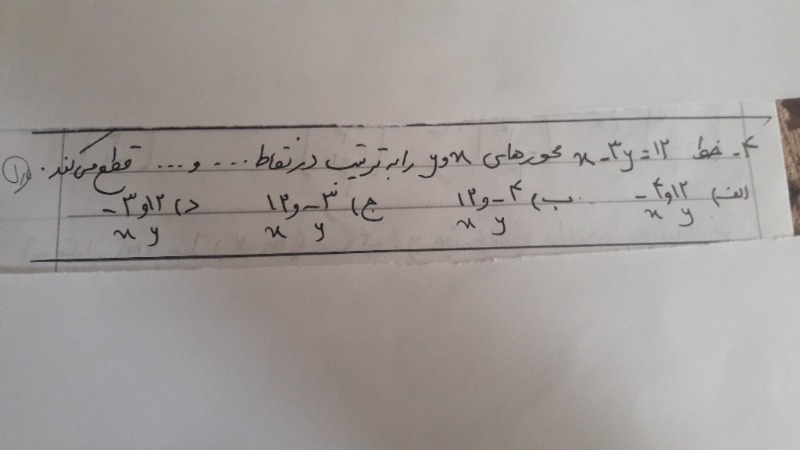 ۴- خط x-۳y=۱۲ محورهای x و y را به ترتیب در نقاط ... و ... قطع می‌کند.
الف) ۱۲ و ۴- ب) ۴- و ۱۲ ج) ۳- و ۱۲ د) ۱۲ و ۳-
x y x y x y x y